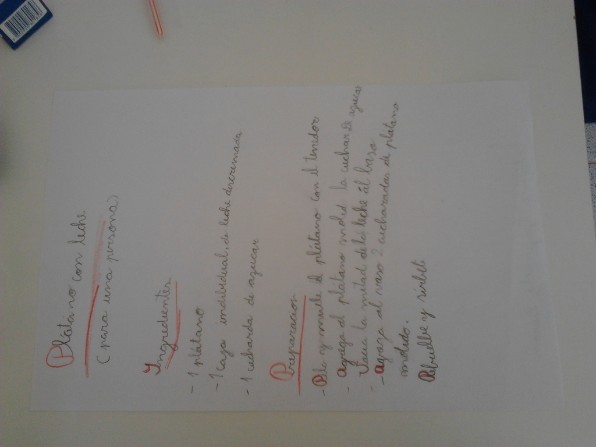 Platano con leche
(para una persona)
Ingredientes
- 1 plátano
- 1 caja individual de leche descremada
- 1 cucharada de azucar
Preparacion
- el plátano con el tenedor
- agrega al plátano molido la cuchara de azucar
- la mitad de la leche al baso
- agrega al vaso 2 cucharadas de plátano
molido.
y